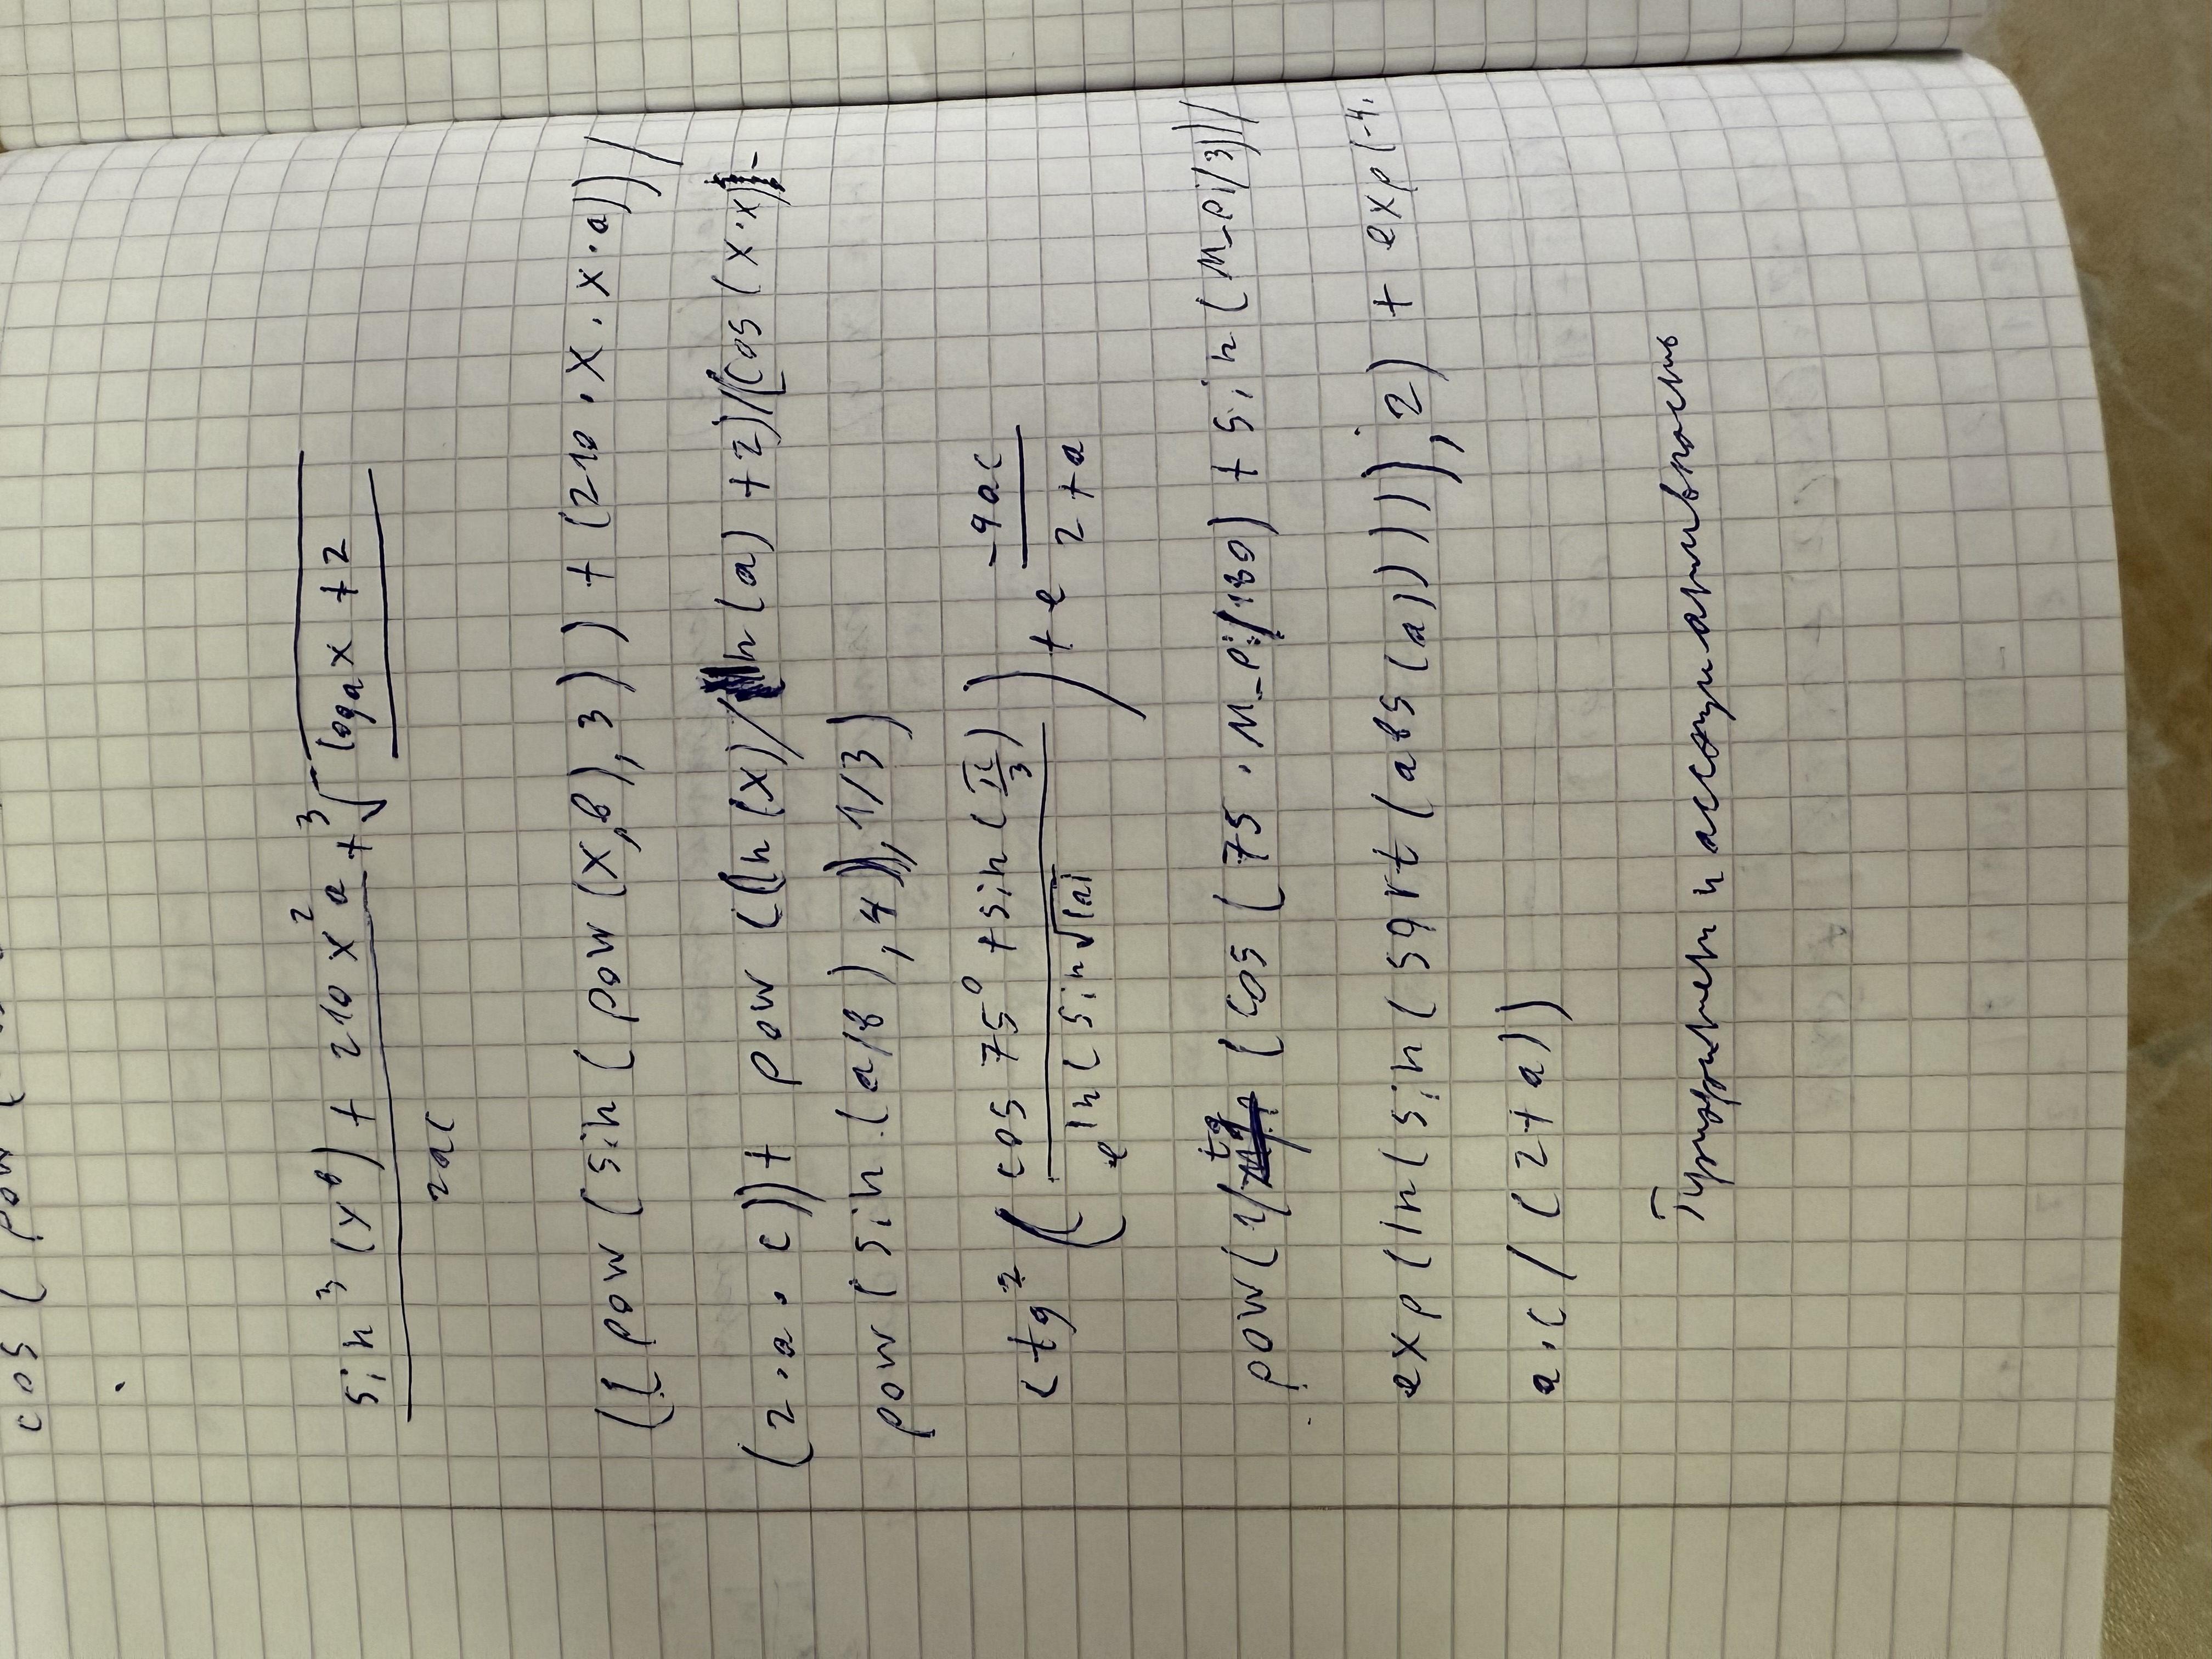 cos ( pow (
sin³ (x^b) + 210 x² a + ³√ log_a x + 2
2ac
(( pow ( sin ( pow (x,b), 3 ) ) + (210 · x · x · a)) /
(2 · a · c)) + pow ((ln (x) / ln (a) + 2) / (cos (x · x) -
pow ( sin (a/b), 4)), 1/3 )
ctg² ( cos 75° + sin ( π/3 ) / e^ln ( sin √|a| ) + e^ -4ac / 2+a
pow ( 1/ tg ( cos ( 75 · M_Pi/180) + sin ( M_Pi/3)) /
exp ( ln ( sin ( sqrt ( abs (a)))))), 2) + exp (-4.
a · c / (2+a))
Приоритет и ассоциативность